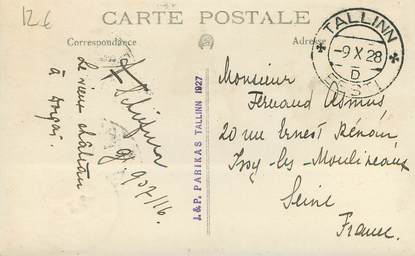 12€
CARTE POSTALE
Correspondance
Adresse
TALLINN
-9 X 28
D
EESTI
Le vieux château
à
907/16.
J.&P. PARIKAS TALLINN 1927
Monsieur
Fernand Asmus
20 rue Ernest Rénan
Issy-les-Moulineaux
Seine
France.